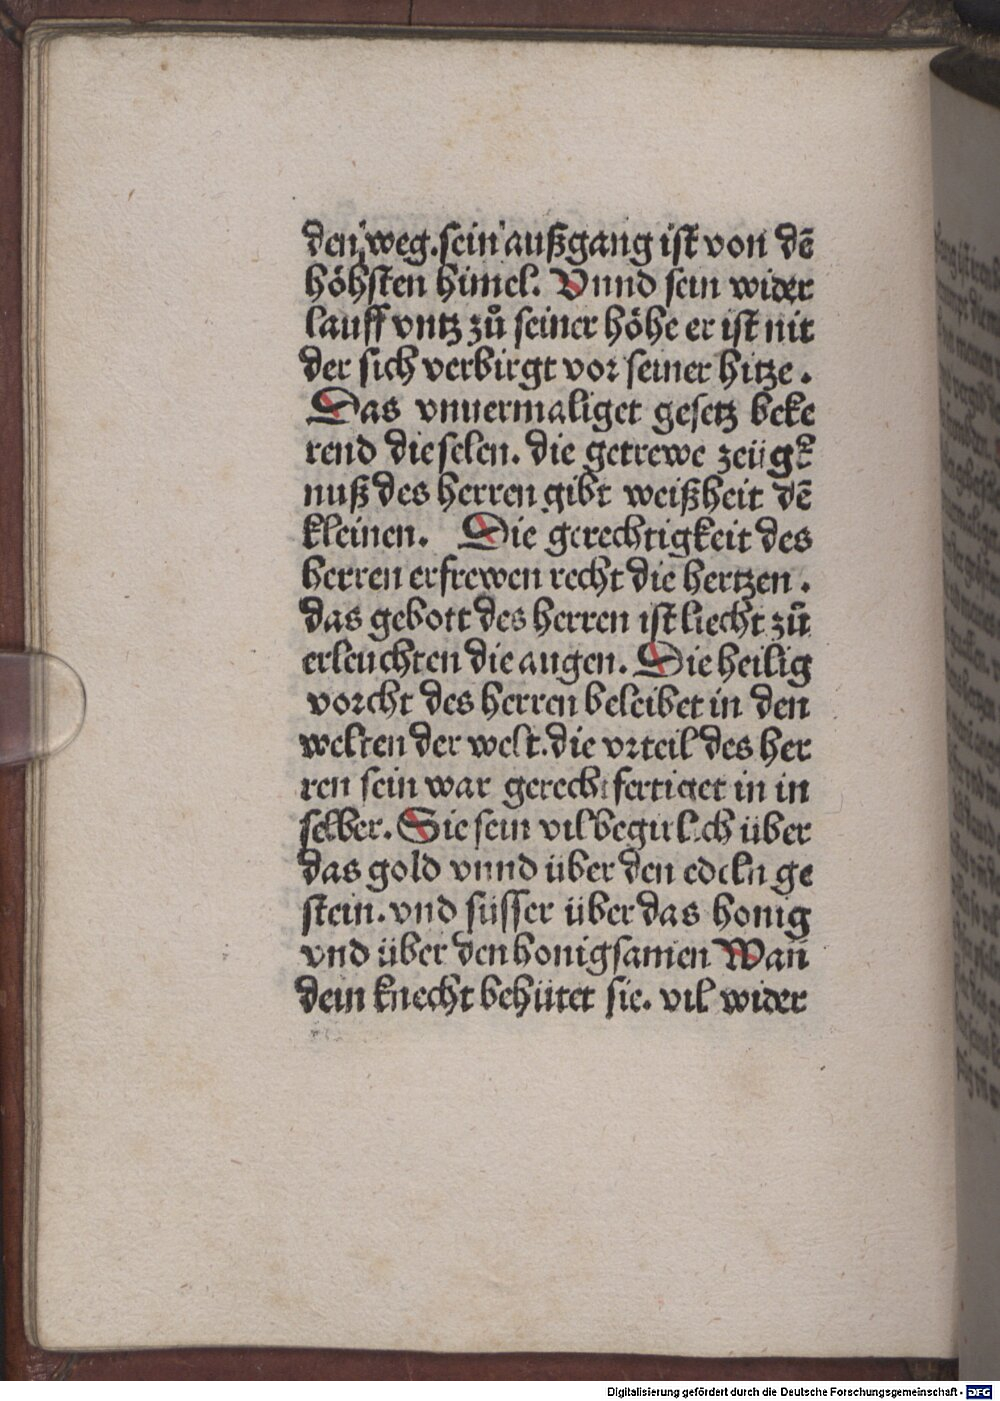 den weg. sein außgang ist von dē
höhsten himel. Vnnd sein wider
lauff vntz zů seiner höhe er ist nit
der sich verbirgt vor seiner hitze.
Das vnuermaliget gesetz beke
rend die selen. die getrewe zeügk
nuß des herren gibt weißheit dē
kleinen. Die gerechtigkeit des
herren erfrewen recht die hertzen.
das gebott des herren ist liecht zů
erleuchten die augen. Die heilig
vorcht des herren beleibet in den
welten der welt. die vrteil des her
ren sein war gerechtfertiget in in
selber. Sie sein vil begirlich über
das gold vnnd über den edeln ge
stein. vnd süsser über das honig
vnd über den honigsamen Wañ
dein knecht behütet sie. vil wider
Digitalisierung gefördert durch die Deutsche Forschungsgemeinschaft - DFG